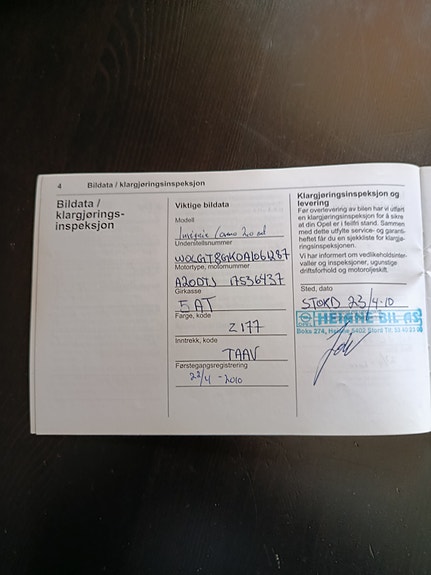 4 Bildata / klargjøringsinspeksjon
Bildata /
klargjørings-
inspeksjon
Viktige bildata
Modell
Insignia 20
Understellsnummer
W0LGT8GKDA1061287
Motortype, motornummer
A20DTJ 17536437
Girkasse
5 AT
Farge, kode
Z 177
Inntrekk, kode
TAAV
Førstegangsregistrering
22/4 - 2010
Klargjøringsinspeksjon og
levering
Før overlevering av bilen har vi utført
en klargjøringsinspeksjon for å sikre
at din Opel er i feilfri stand. Sammen
med dette utfylte service- og garanti-
heftet får du en sjekkliste for klargjø-
ringsinspeksjonen.
Vi har informert om vedlikeholdsinter-
valler og inspeksjoner, ugunstige
driftsforhold og motoroljeskift.
Sted, dato
STORD 23/4-10
HETLANE BIL AS
Boks 274, 5402 Stord Tlf. 53